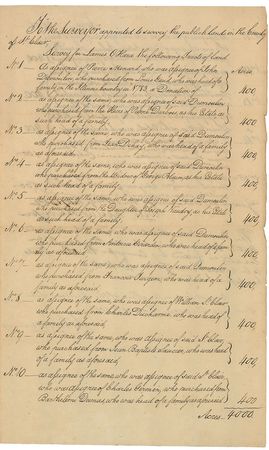 To the Surveyor appointed to survey the public lands in the County
of St Clair.
Survey for James O'Hara the following Tracts of Land
Acres
No 1 As assignee of who was assignee of John
Dumoulin, who purchased from Louis who was head of a
family in the Illinois Country in 1783 a Donation of 400,
No 2 as assignee of the same, who was assignee of said Dumoulin
who purchased from the Heirs of Pierre his Estate
as such Head of a family. 400,
No 3 as assignee of the same who was assignee of said Dumoulin
who purchased from who was head of a family
as aforesaid 400,
No 4 as assignee of the same, who was assignee of said Dumoulin
who purchased from the Widow of his Estate
as such Head of a family. 400,
No 5 as assignee of the same, who was assignee of said Dumoulin
who from the Daughter of Joseph his Estate
as such head of a family. 400,
No 6 as assignee of the same, who was assignee of said Dumoulin
who purchased from who was head of a fam-
ily as aforesaid. 400,
No 7 as assignee of the same, who was assignee of said Dumoulin
who purchased from Francois who was head of a
family as aforesaid 400,
No 8 as assignee of the same, who was assignee of William St Clair
who purchased from Charles who was head of
a family as aforesaid 400,
No 9 as assignee of the same, who was assignee of said St Clair
who purchased from Jean Baptiste who was head
of a family, as aforesaid, 400,
No 10 as assignee of the same, who was assignee of said St Clair,
who was assignee of Charles who purchased from
who was head of a family as aforesaid 400
Acres. 4000.